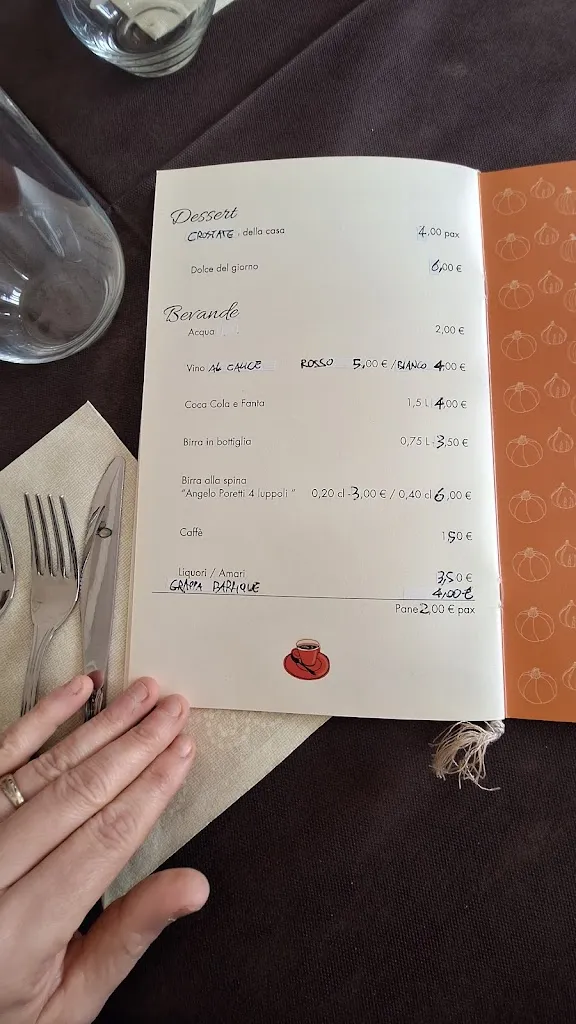 Dessert
CROSTATE della casa 4,00 pax
Dolce del giorno 6,00 €
Bevande
Acqua 2,00 €
Vino AL CALICE ROSSO 5,00 € / BIANCO 4,00 €
Coca Cola e Fanta 1,5 L 4,00 €
Birra in bottiglia 0,75 L 3,50 €
Birra alla spina
"Angelo Poretti 4 luppoli " 0,20 cl 3,00 € / 0,40 cl 6,00 €
Caffè 1,50 €
Liquori / Amari 3,50 €
GRAPPA BARRIQUE 4,00 €
Pane 2,00 € pax